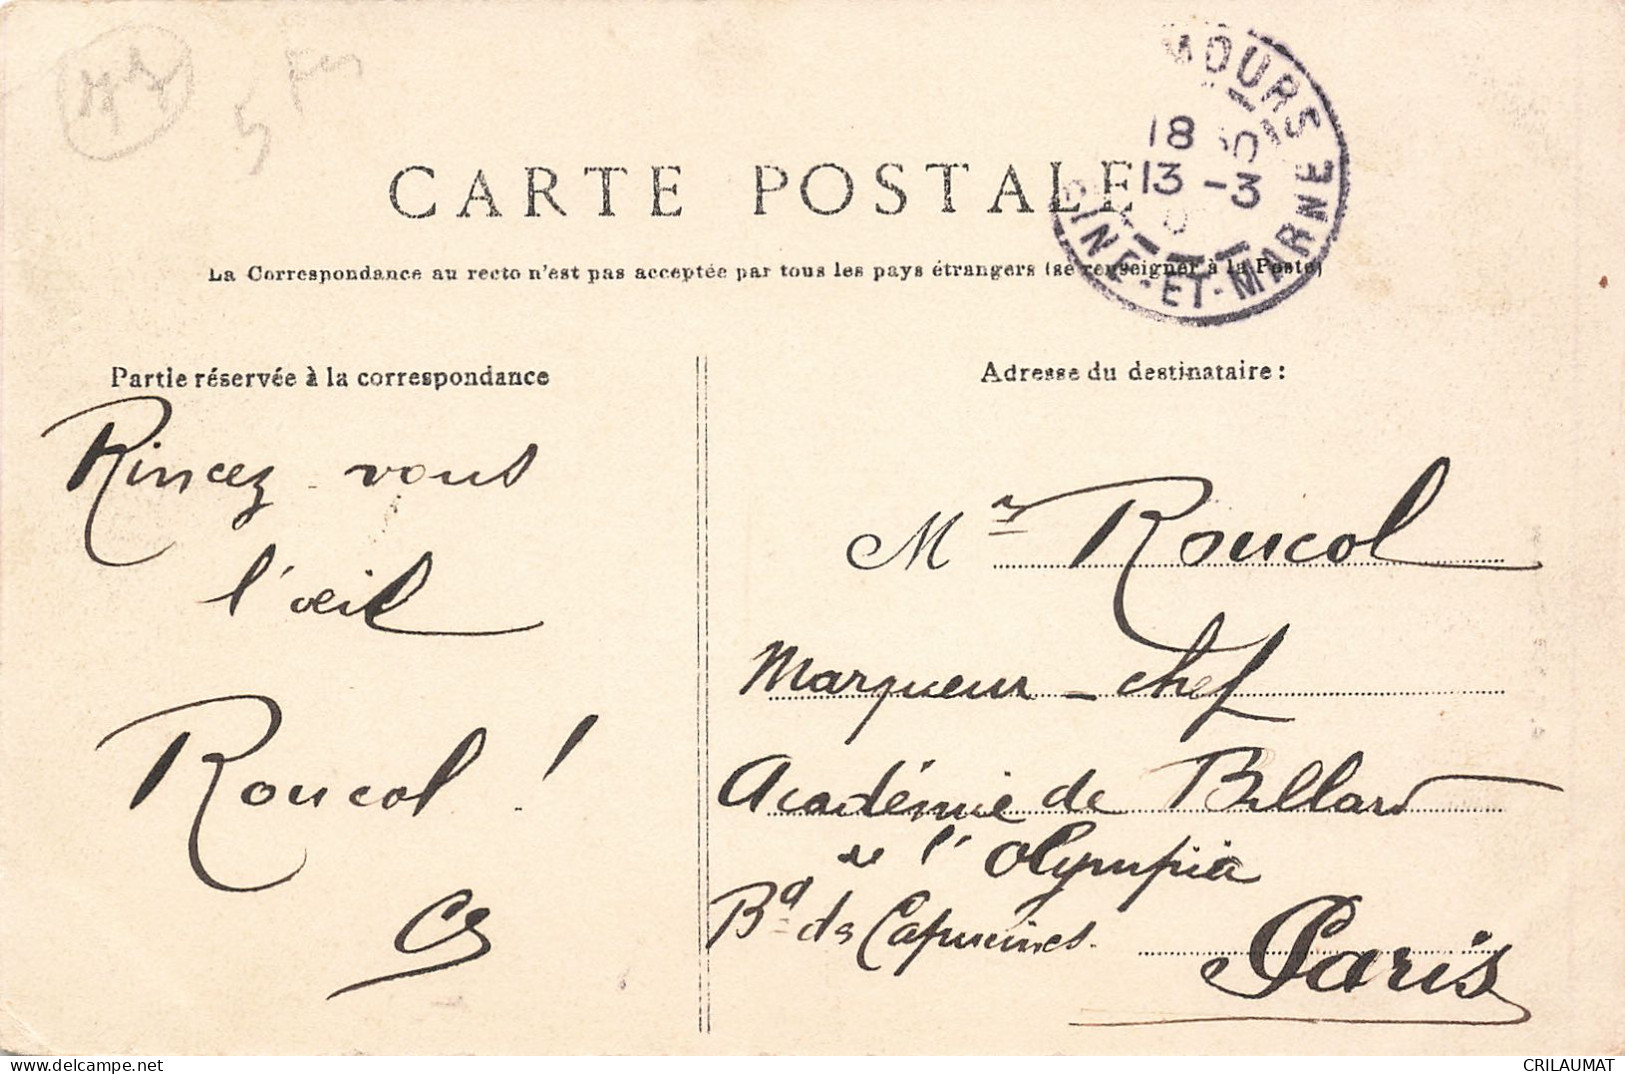 CARTE POSTALE
La Correspondance au recto n'est pas acceptée par tous les pays étrangers (se renseigner à la Poste)
MOURS
18 30
13 -3
SEINE-ET-MARNE
Partie réservée à la correspondance
Rincez vous
l'œil
Roucol !
Adresse du destinataire :
Mr Roucol
Marqueur-chef
Académie de Billard
de l'Olympia
Bd des Capucines.
Paris
CRILAUMAT